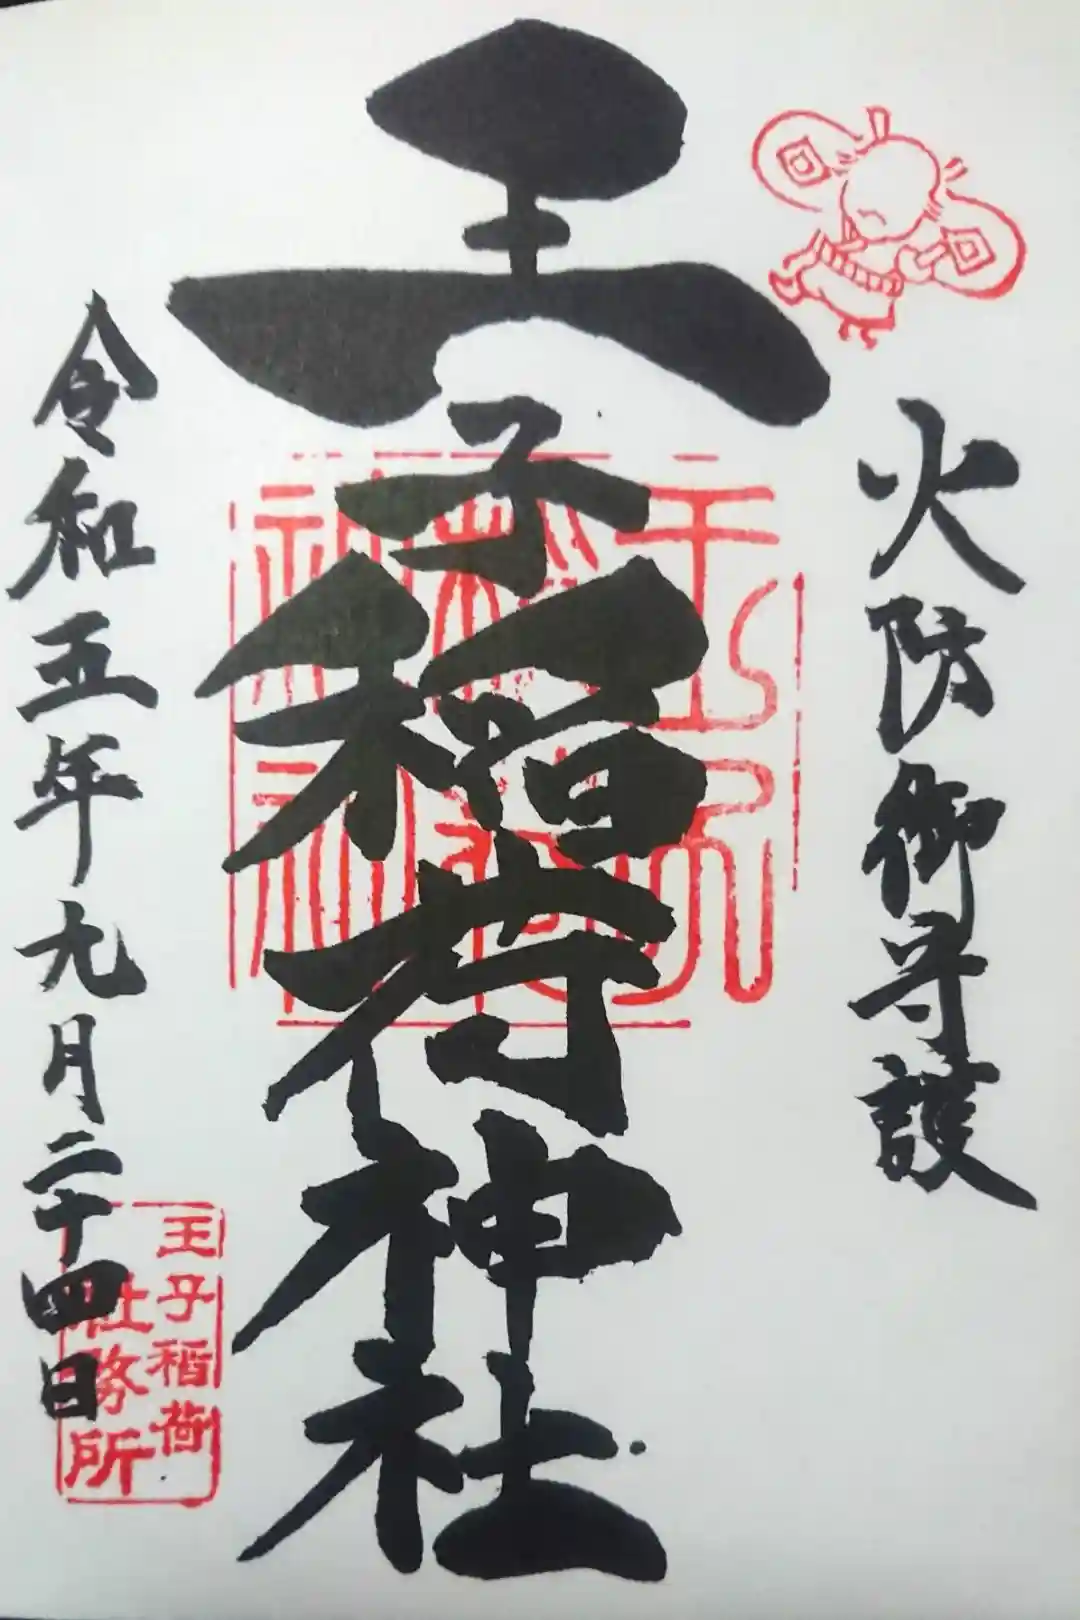 火防御守護
王子稲荷神社
王子稲荷神社
令和五年九月二十四日
王子稲荷
社務所